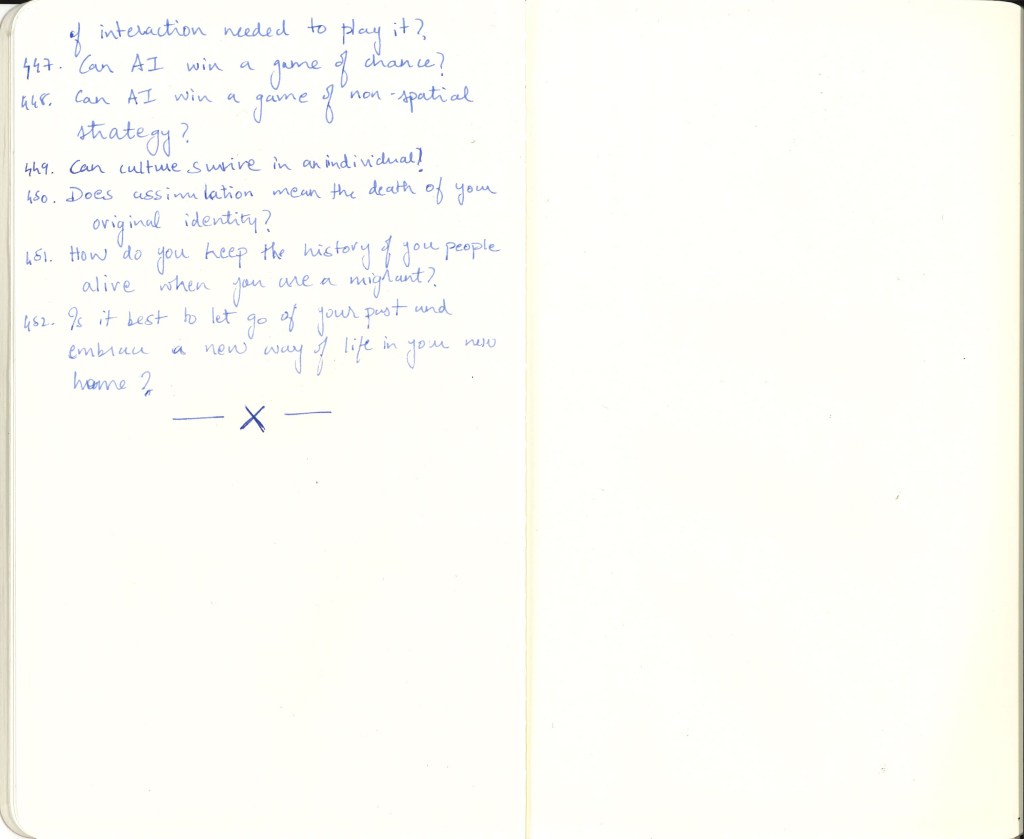 of interaction needed to play it?
447. Can AI win a game of chance?
448. Can AI win a game of non-spatial
strategy?
449. Can culture survive in an individual?
450. Does assimilation mean the death of your
original identity?
451. How do you keep the history of you people
alive when you are a migrant?
452. Is it best to let go of your past and
embrace a new way of life in your new
home?
— X —